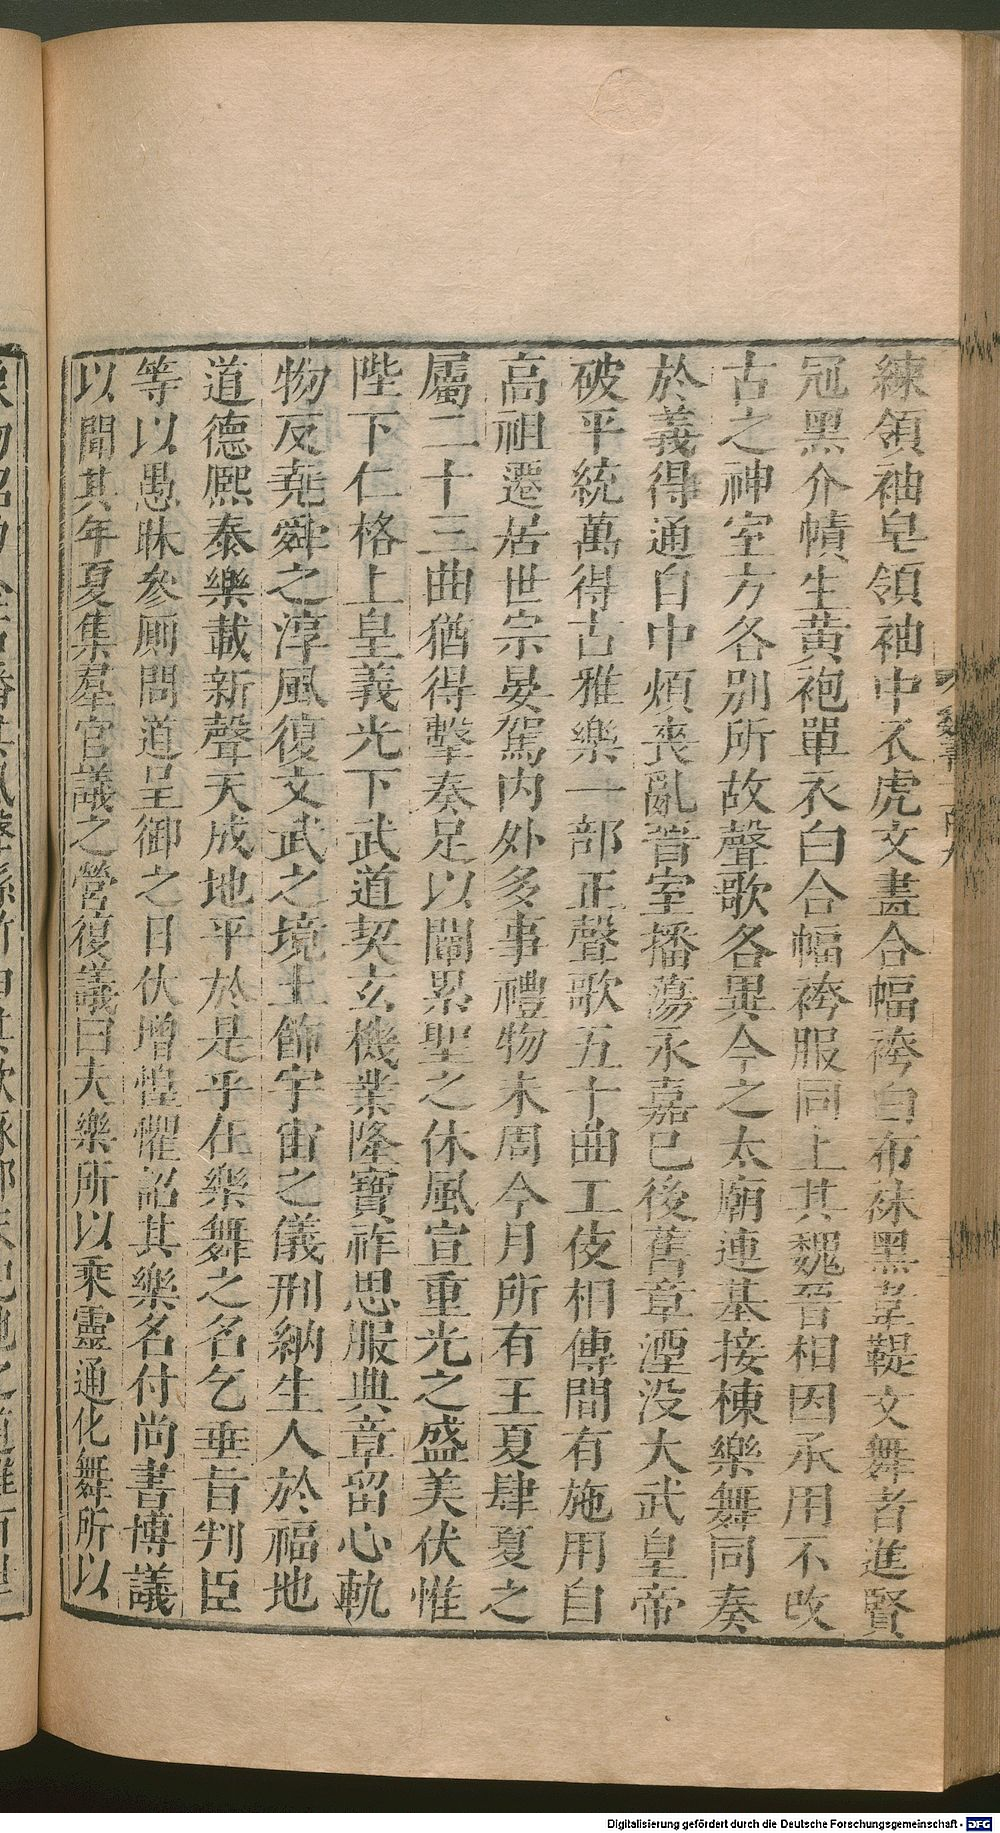 練領袖皂領袖中衣虎文畫合幅袴白布袜黑韋鞮文舞者進賢
冠黑介幘生黄袍單衣白合幅袴服同上其魏晉相因承用不改
古之神室方各别所故聲歌各異今之太廟連基接棟樂舞同奏
於義得通自中煩喪亂晉室播蕩永嘉已後舊章湮没大武皇帝
破平統萬得古雅樂一部正聲歌五十曲工伎相傳間有施用自
高祖遷居世宗晏駕内外多事禮物未周今月所有王夏肆夏之
屬二十三曲猶得擊奏足以闡累聖之休風宣重光之盛美伏惟
陛下仁格上皇義光下武道契玄機業隆寶祚思服典章留心軌
物反堯舜之淳風復文武之境土飾宇宙之儀刑納生人於福地
道德熙泰樂載新聲天成地平於是乎在樂舞之名乞垂旨判臣
等以愚昧參厠問道呈御之日伏增惶懼詔其樂名付尚書博議
以聞其年夏集羣官議之營復議曰夫樂所以乘靈通化舞所以
Digitalisierung gefördert durch die Deutsche Forschungsgemeinschaft - DFG